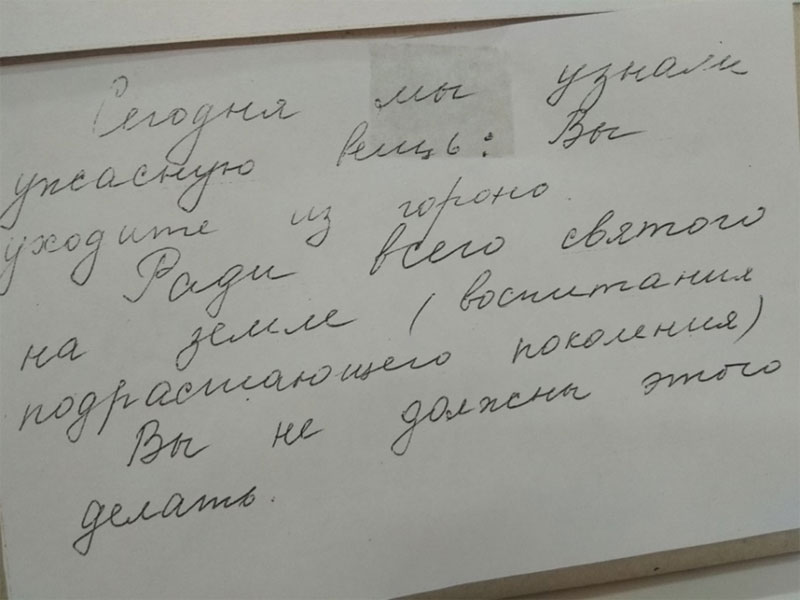 Сегодня мы узнали
ужасную вещь: Вы
уходите из гороно.
Ради всего святого
на земле (воспитания
подрастающего поколения)
Вы не должны этого
делать.